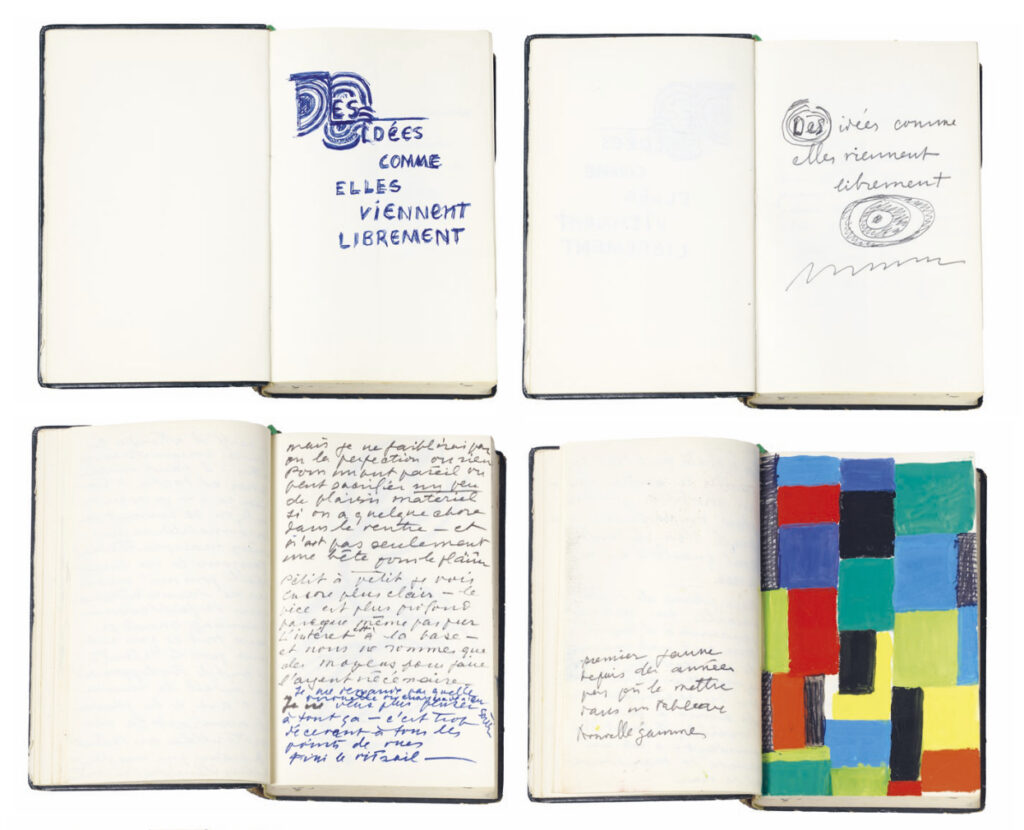 DES
IDÉES
COMME
ELLES
VIENNENT
LIBREMENT
Des idées comme
elles viennent
librement
mais je ne faiblirai pas
ou la perfection ou rien
Pour autant pareil on
peut sacrifier un peu
de plaisir matériel
si on a quelque chose
dans le ventre — et
n'est pas seulement
une bête pour le plaisir
Petit à petit je vois
encore plus clair — le
vice est plus profond
parce que même pas pur
l'intérêt à la base —
et nous ne sommes que
des moyens pour faire
l'argent nécessaire
Je ne
Je ne veux plus penser
à tout ça — c'est trop
décevant à tous les
points de vues
Fini le vitrail —
premier jaune
depuis des années
pas où le mettre
dans un tableau
Nouvelle gamme